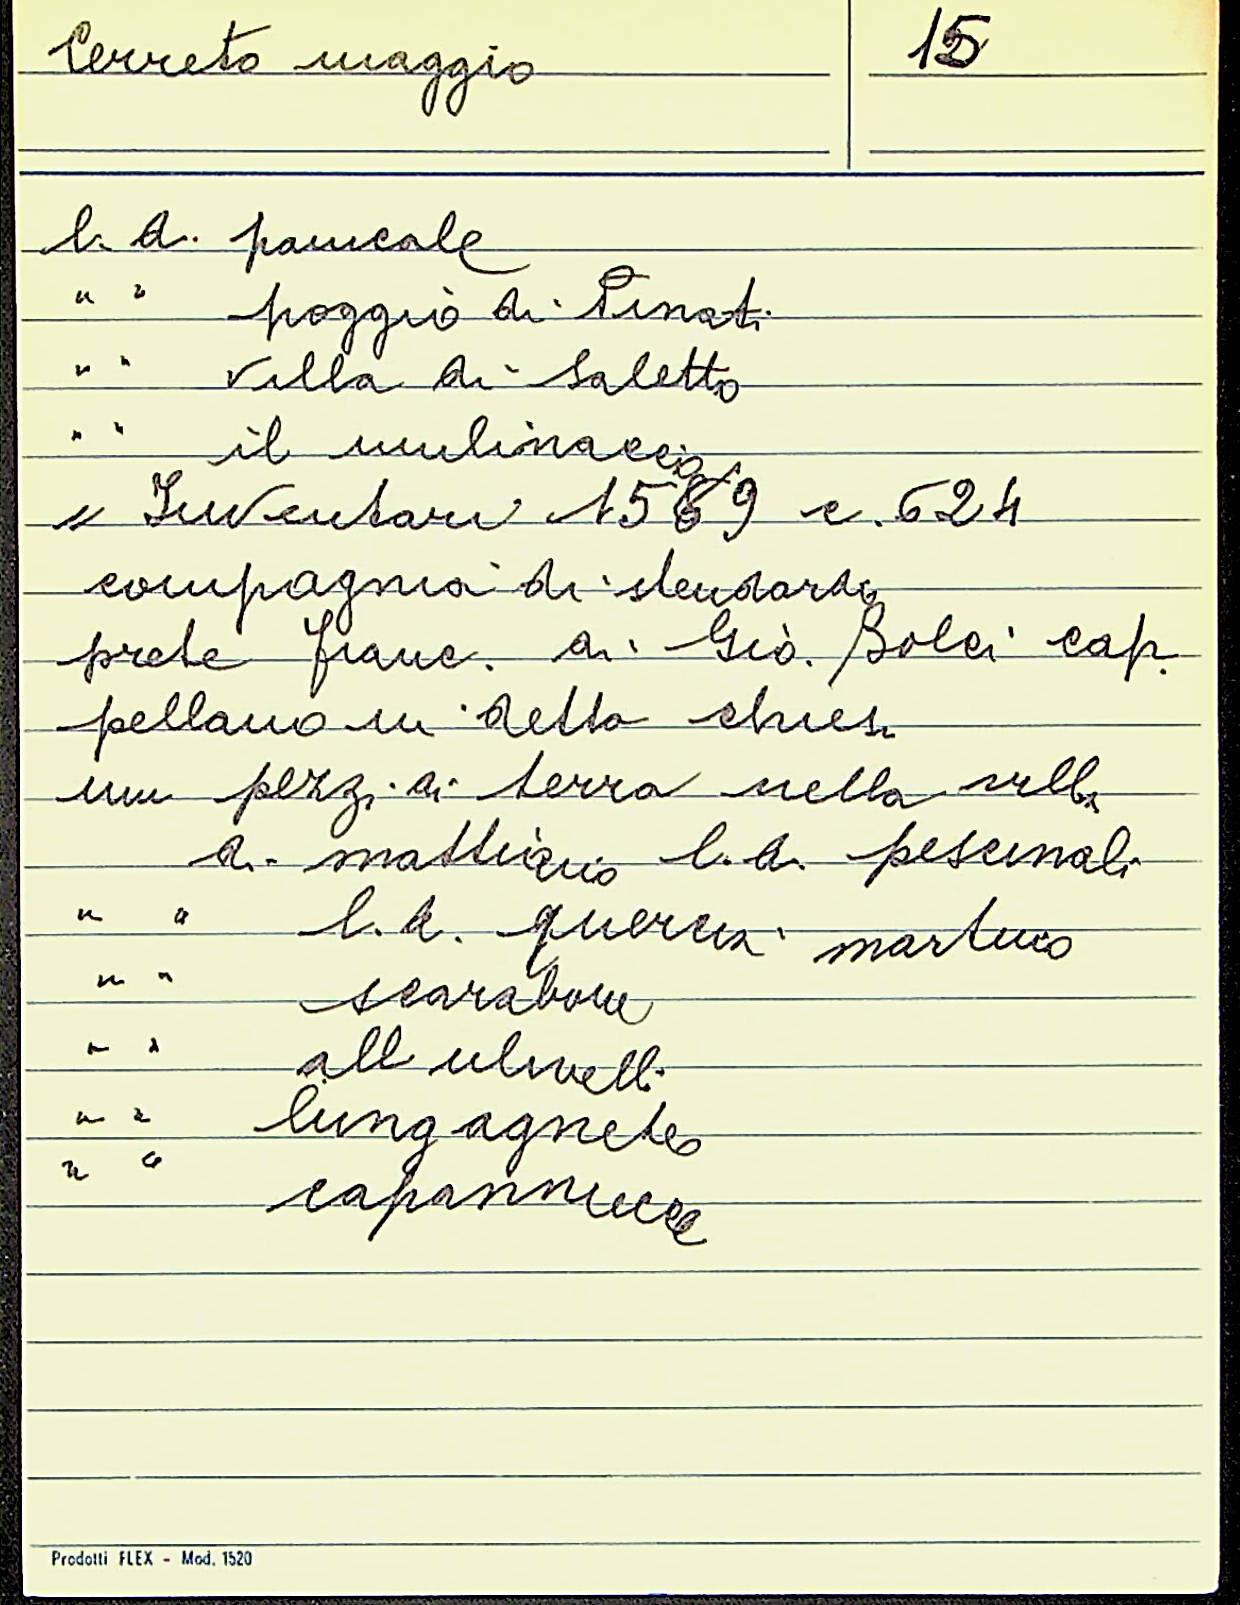 Cerreto maggio
15
l. d. pancale
" " poggio di Pinati
" " villa di Saletto
" " il mulinaccio
" Inventari 1589 c. 624
compagnia di stendardo
prete franc. di Giò. Bolci cap.
pellano in detta chiesa
un pezz. di terra nella villa
di l. d. pescinali
" " l. d. quercia martino
" " scarabone
" " all ulivelli
" " lungagneto
" " capannucce
Prodotti FLEX - Mod. 1520